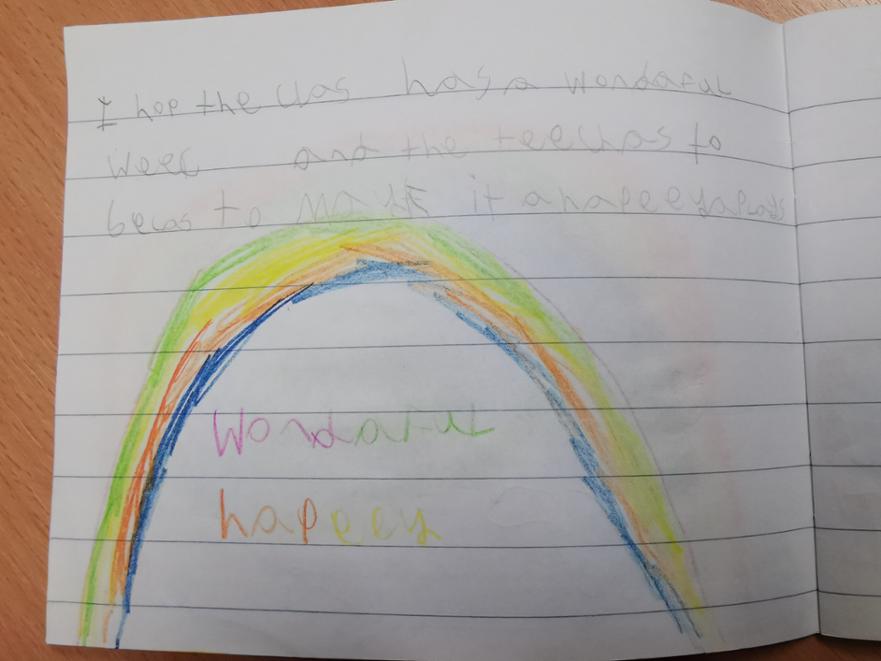 I hop the clas has a wondaful
weec and the teechas to
becas to make it a hapeey aplays
wondaful
hapeey